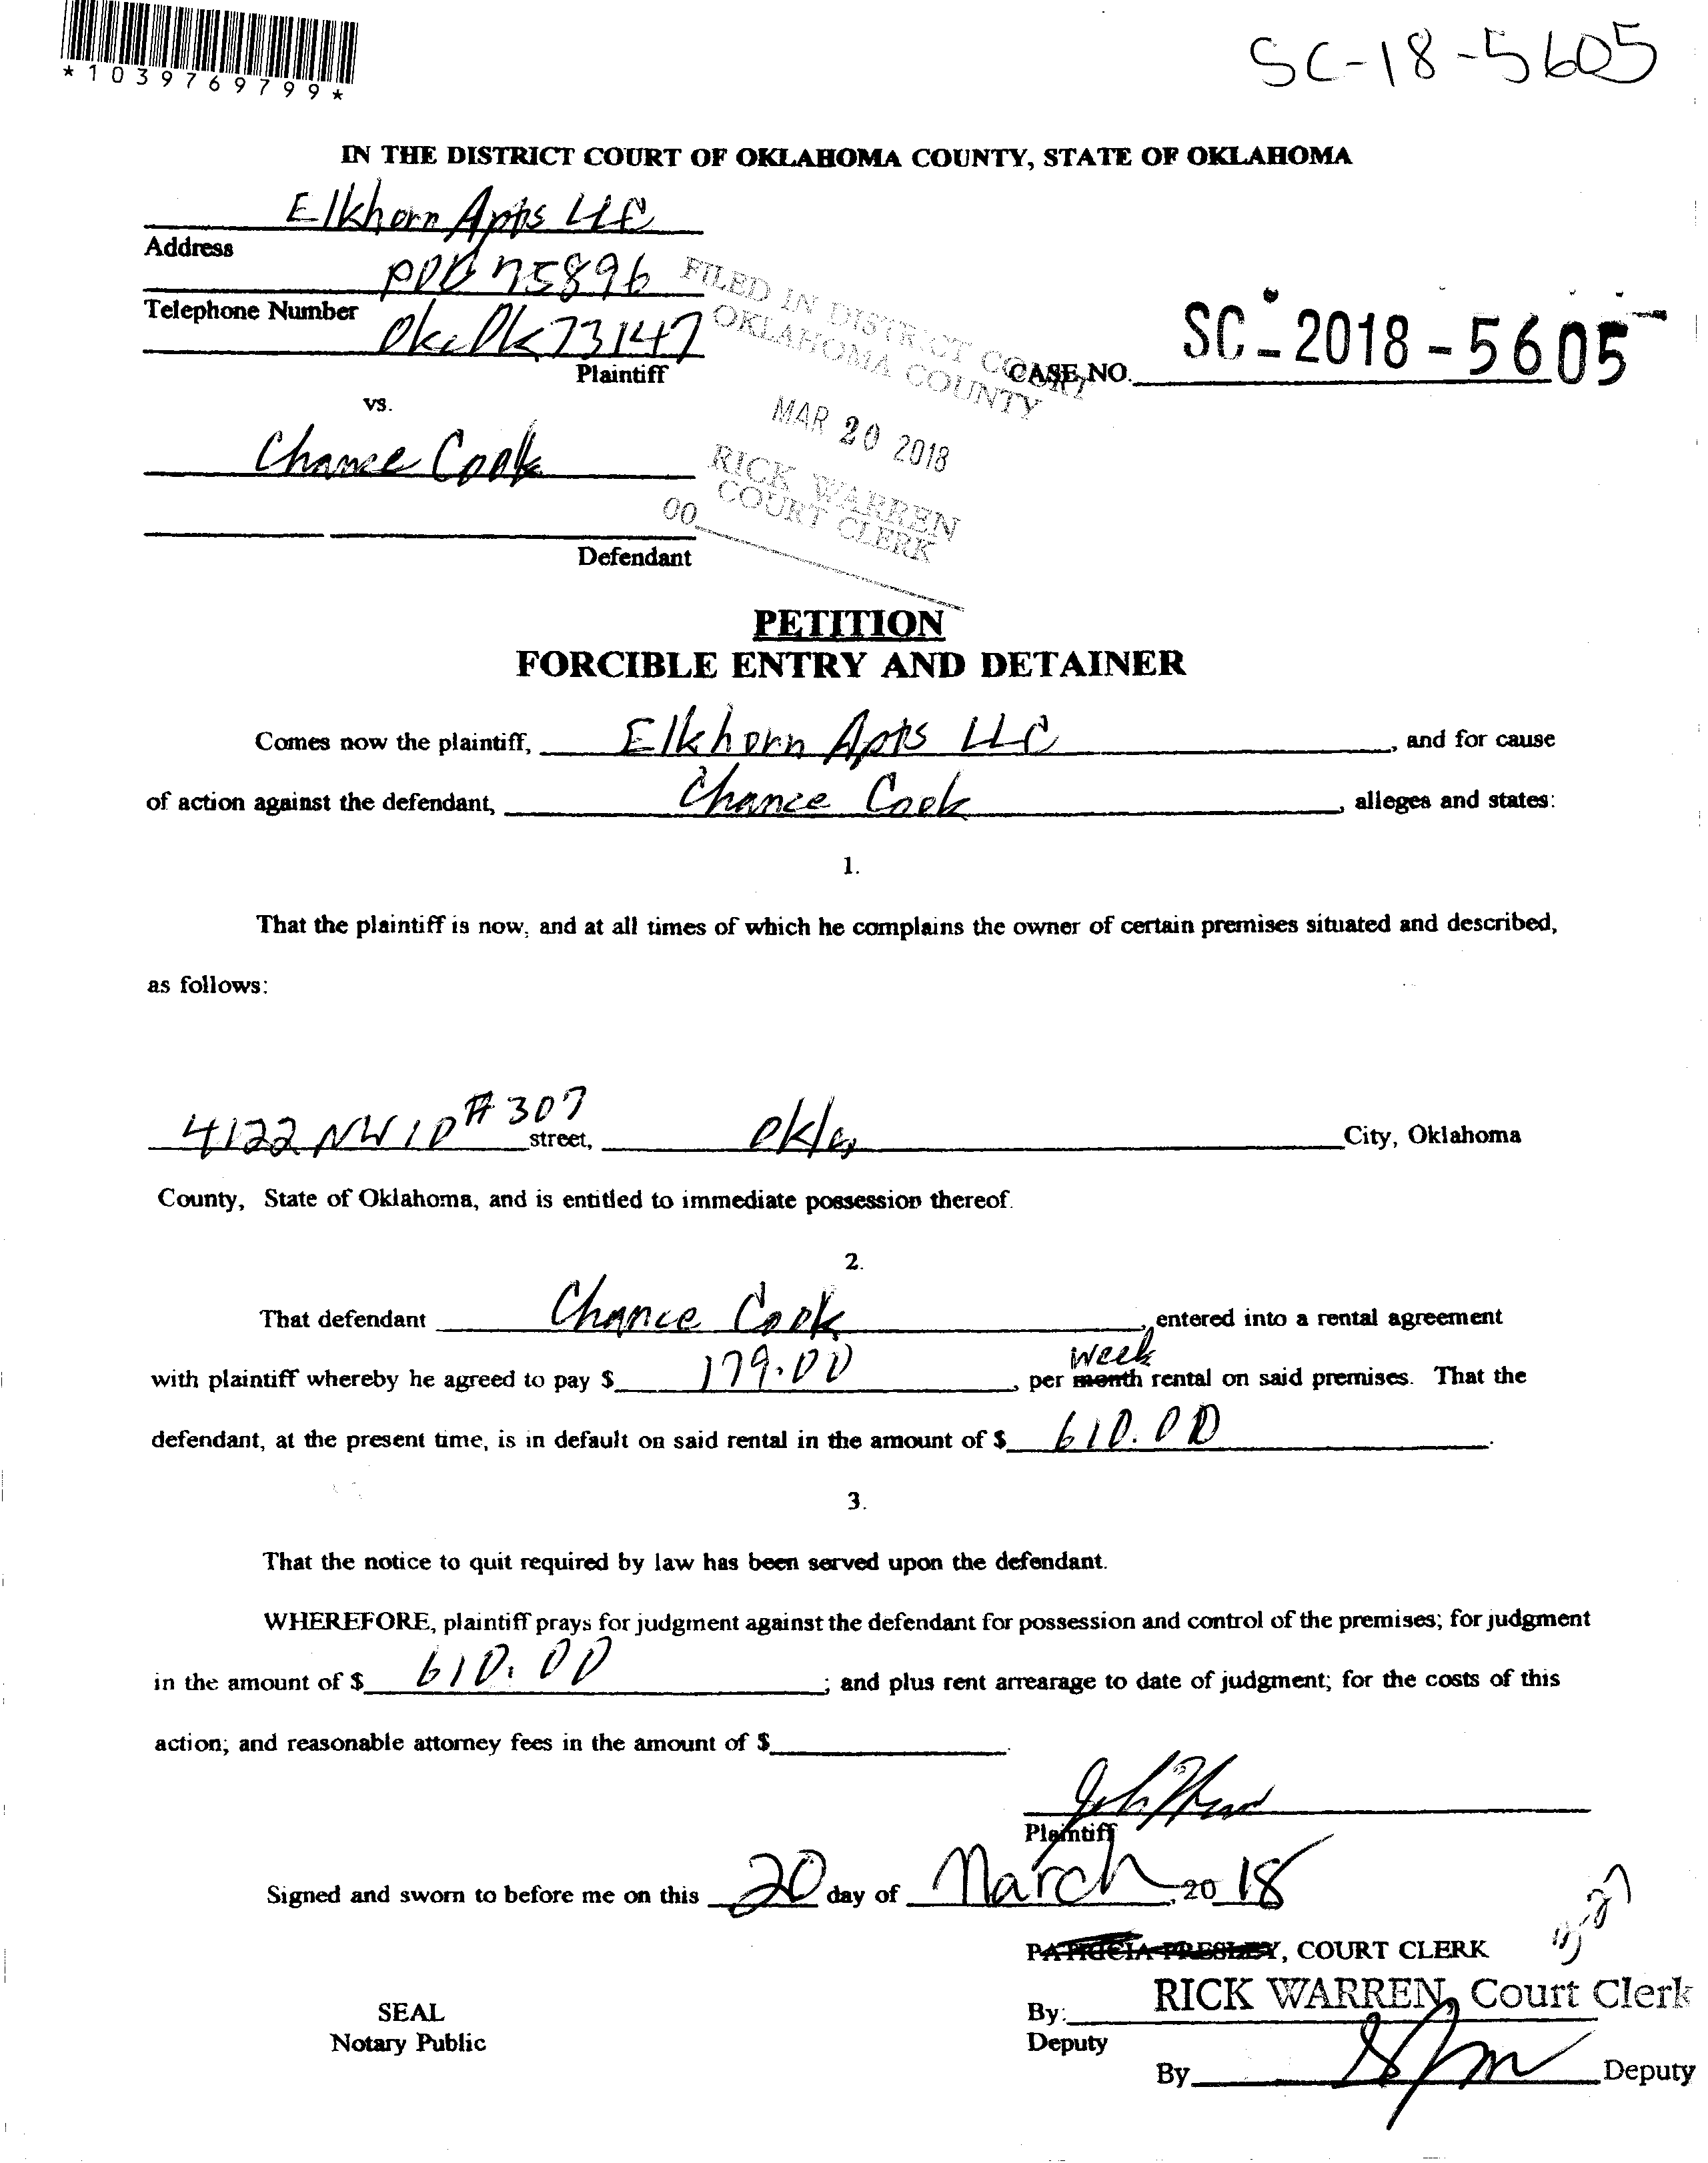 *1039769799*
SC-18-5605
IN THE DISTRICT COURT OF OKLAHOMA COUNTY, STATE OF OKLAHOMA
Elkhorn Apts LLC
Address
POB 75896
Telephone Number
Okc Ok 73147
Plaintiff
FILED IN DISTRICT COURT
OKLAHOMA COUNTY
MAR 20 2018
RICK WARREN
COURT CLERK
00
CASE NO. SC-2018-5605
vs.
Chance Cook
Defendant
PETITION
FORCIBLE ENTRY AND DETAINER
Comes now the plaintiff, Elkhorn Apts LLC, and for cause
of action against the defendant, Chance Cook, alleges and states:
1.
That the plaintiff is now, and at all times of which he complains the owner of certain premises situated and described,
as follows:
4122 NW 10 #307 street, Okla City, Oklahoma
County, State of Oklahoma, and is entitled to immediate possession thereof.
2.
That defendant Chance Cook, entered into a rental agreement
with plaintiff whereby he agreed to pay $ 179.00, per month week rental on said premises. That the
defendant, at the present time, is in default on said rental in the amount of $ 610.00.
3.
That the notice to quit required by law has been served upon the defendant.
WHEREFORE, plaintiff prays for judgment against the defendant for possession and control of the premises; for judgment
in the amount of $ 610.00; and plus rent arrearage to date of judgment; for the costs of this
action; and reasonable attorney fees in the amount of $ .
Plaintiff
Signed and sworn to before me on this 20 day of March, 20 18
PATRICIA PRESLEY, COURT CLERK
RICK WARREN, Court Clerk
By:
Deputy
SEAL
Notary Public
By Deputy